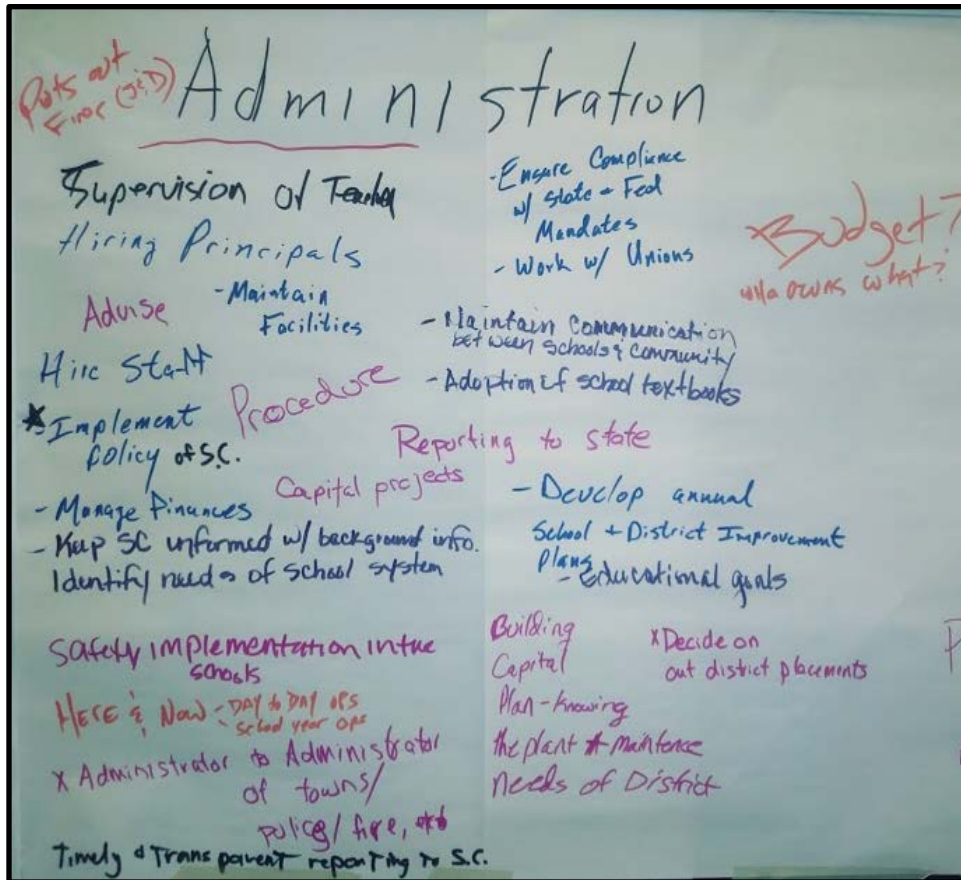 Puts out
Fires
Administration
Supervision of Teacher
Hiring Principals
Advise
- Maintain
Facilities
Hire Staff
Procedure
Implement
policy of S.C.
Capital projects
- Manage Finances
- Keep SC informed w/ background info.
Identify needs of school system
Safety implementation in the
schools
HERE & NOW - DAY to DAY OPS
- School year OPS
x Administrator to Administrator
of towns/
police/ fire,
Timely & Transparent reporting to S.C.
- Ensure Compliance
w/ State & Fed
Mandates
- Work w/ Unions
- Maintain Communication
between schools & community
- Adoption of school textbooks
Reporting to state
- Develop annual
School + District Improvement
Plans
- Educational goals
Building
Capital
Plan - knowing
the plant & maintence
needs of District
x Decide on
out district placements
Budget?
who owns what?